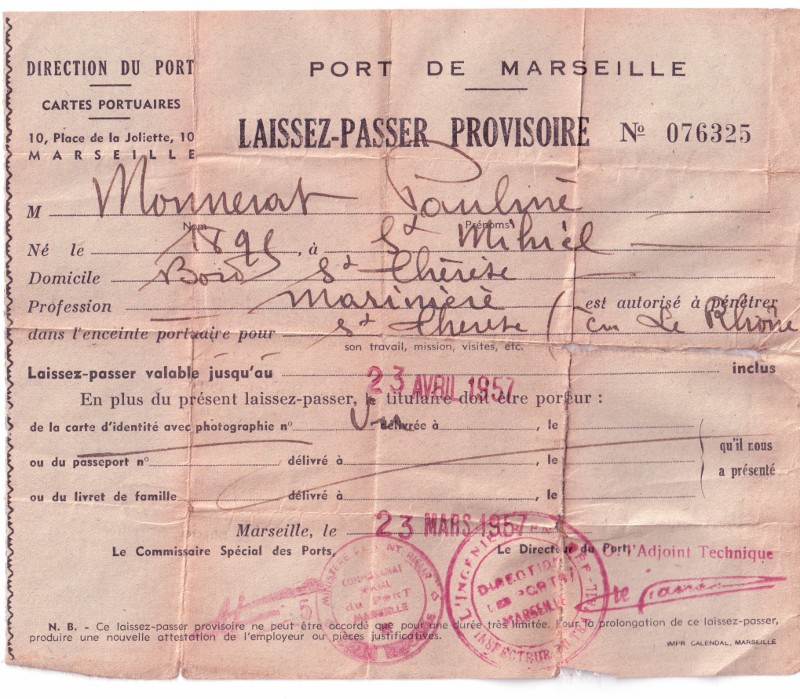 DIRECTION DU PORT
CARTES PORTUAIRES
10, Place de la Joliette, 10
MARSEILLE
PORT DE MARSEILLE
LAISSEZ-PASSER PROVISOIRE Nº 076325
M Monnerat Pauline
Nom Prénoms
Né le 1895, à St Mihiel
Domicile Bord Ste Thérèse
Profession Marinière est autorisé à pénétrer
dans l'enceinte portuaire pour Ste Thérèse Le Rhône
son travail, mission, visites, etc.
Laissez-passer valable jusqu'au 23 AVRIL 1957 inclus
En plus du présent laissez-passer, le titulaire doit être porteur :
de la carte d'identité avec photographie nº Vu délivrée à , le
ou du passeport nº délivré à , le
ou du livret de famille délivré à , le
qu'il nous
a présenté
Marseille, le 23 MARS 1957
Le Commissaire Spécial des Ports, Le Directeur du Port,
l'Adjoint Technique
COMMISSARIAT
SPÉCIAL
du PORT
MARSEILLE
L'INGÉNIEUR
DIRECTION
DES PORTS
MARSEILLE
INSPECTEUR
N. B. - Ce laissez-passer provisoire ne peut être accordé que pour une durée très limitée. Pour la prolongation de ce laissez-passer,
produire une nouvelle attestation de l'employeur ou pièces justificatives.
IMPR CALENDAL, MARSEILLE